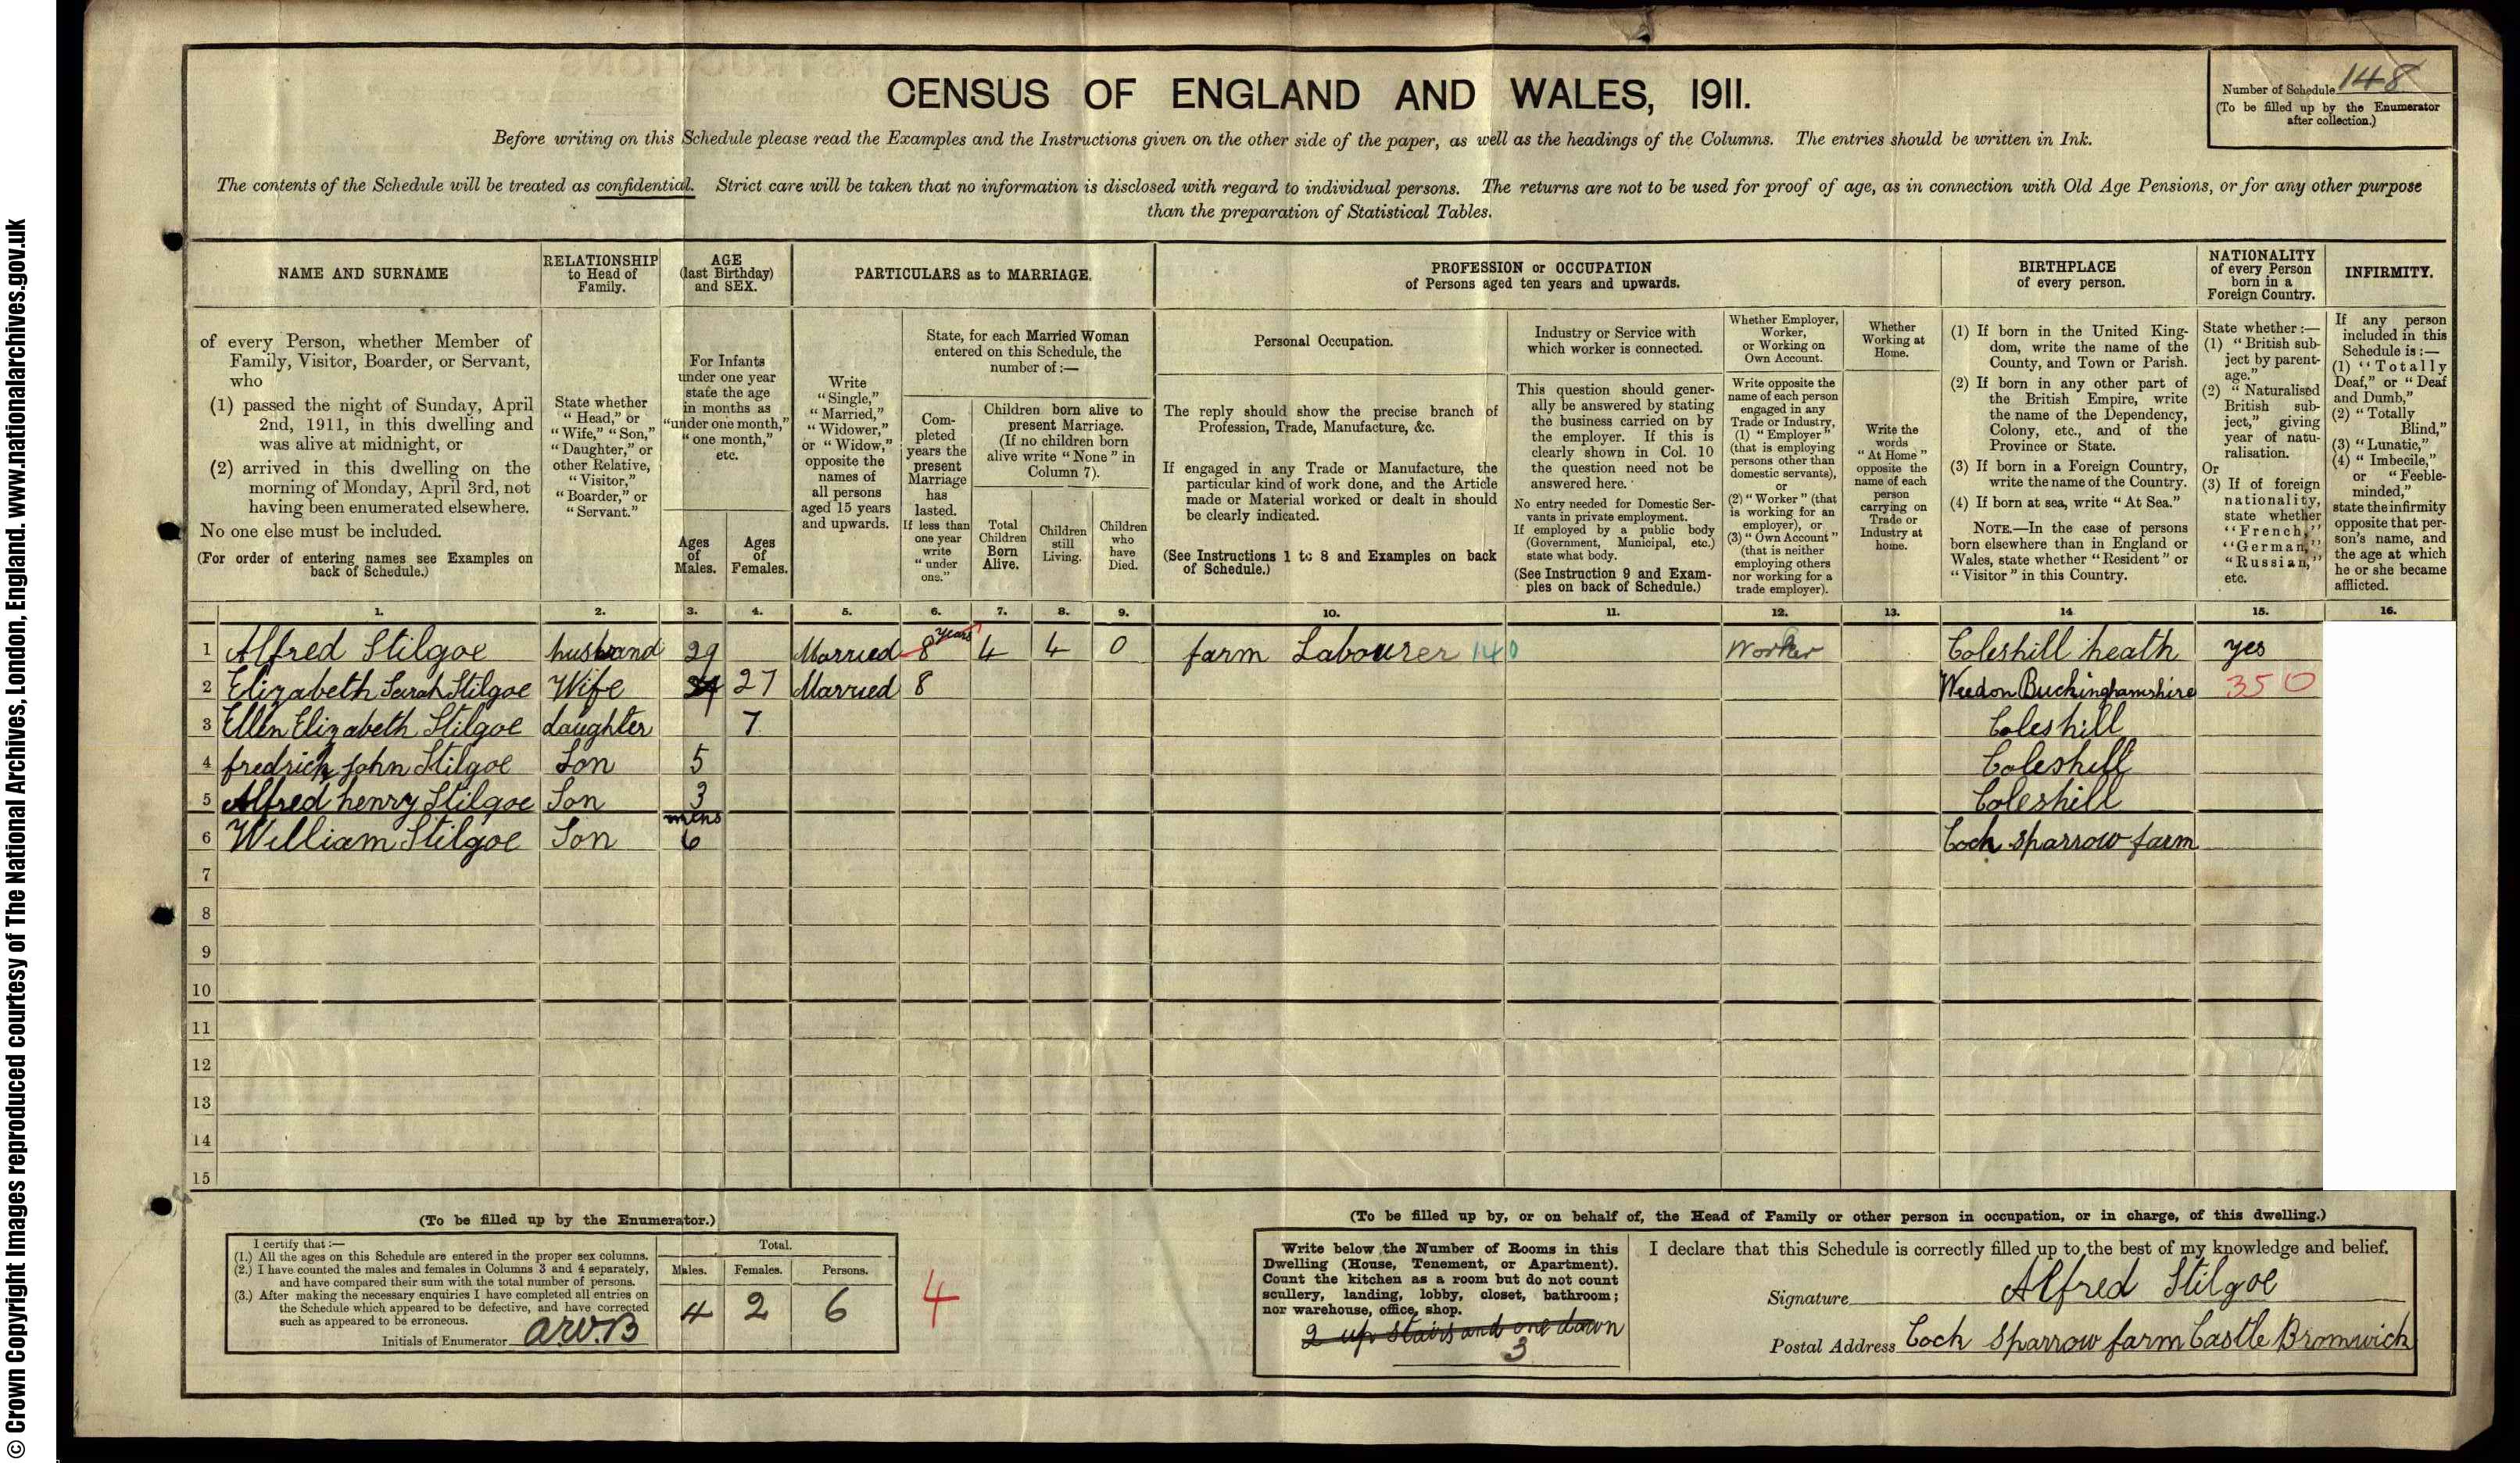 © Crown Copyright Images reproduced courtesy of The National Archives, London, England. www.nationalarchives.gov.uk
CENSUS OF ENGLAND AND WALES, 1911.
Number of Schedule 148
(To be filled up by the Enumerator
after collection.)
Before writing on this Schedule please read the Examples and the Instructions given on the other side of the paper, as well as the headings of the Columns. The entries should be written in Ink.
The contents of the Schedule will be treated as confidential. Strict care will be taken that no information is disclosed with regard to individual persons. The returns are not to be used for proof of age, as in connection with Old Age Pensions, or for any other purpose
than the preparation of Statistical Tables.
NAME AND SURNAME
of every Person, whether Member of
Family, Visitor, Boarder, or Servant,
who
(1) passed the night of Sunday, April
2nd, 1911, in this dwelling and
was alive at midnight, or
(2) arrived in this dwelling on the
morning of Monday, April 3rd, not
having been enumerated elsewhere.
No one else must be included.
(For order of entering names see Examples on
back of Schedule.)
RELATIONSHIP
to Head of
Family.
State whether
"Head," or
"Wife," "Son,"
"Daughter," or
other Relative,
"Visitor,"
"Boarder," or
"Servant."
AGE
(last Birthday)
and SEX.
For Infants
under one year
state the age
in months as
"under one month,"
"one month,"
etc.
Ages
of
Males.
Ages
of
Females.
PARTICULARS as to MARRIAGE.
Write
"Single,"
"Married,"
"Widower,"
or "Widow,"
opposite the
names of
all persons
aged 15 years
and upwards.
State, for each Married Woman
entered on this Schedule, the
number of:—
Com-
pleted
years the
present
Marriage
has
lasted.
If less than
one year
write
"under
one."
Children born alive to
present Marriage.
(If no children born
alive write "None" in
Column 7).
Total
Children
Born
Alive.
Children
still
Living.
Children
who
have
Died.
PROFESSION or OCCUPATION
of Persons aged ten years and upwards.
Personal Occupation.
The reply should show the precise branch of
Profession, Trade, Manufacture, &c.
If engaged in any Trade or Manufacture, the
particular kind of work done, and the Article
made or Material worked or dealt in should
be clearly indicated.
(See Instructions 1 to 8 and Examples on back
of Schedule.)
Industry or Service with
which worker is connected.
This question should gener-
ally be answered by stating
the business carried on by
the employer. If this is
clearly shown in Col. 10
the question need not be
answered here.
No entry needed for Domestic Ser-
vants in private employment.
If employed by a public body
(Government, Municipal, etc.)
state what body.
(See Instruction 9 and Exam-
ples on back of Schedule.)
Whether Employer,
Worker,
or Working on
Own Account.
Write opposite the
name of each person
engaged in any
Trade or Industry,
(1) "Employer"
(that is employing
persons other than
domestic servants),
or
(2) "Worker" (that
is working for an
employer), or
(3) "Own Account"
(that is neither
employing others
nor working for a
trade employer).
Whether
Working at
Home.
Write the
words
"At Home"
opposite the
name of each
person
carrying on
Trade or
Industry at
home.
BIRTHPLACE
of every person.
(1) If born in the United King-
dom, write the name of the
County, and Town or Parish.
(2) If born in any other part of
the British Empire, write
the name of the Dependency,
Colony, etc., and of the
Province or State.
(3) If born in a Foreign Country,
write the name of the Country.
(4) If born at sea, write "At Sea."
NOTE.—In the case of persons
born elsewhere than in England or
Wales, state whether "Resident" or
"Visitor" in this Country.
NATIONALITY
of every Person
born in a
Foreign Country.
State whether:—
(1) "British sub-
ject by parent-
age."
(2) "Naturalised
British sub-
ject," giving
year of natu-
ralisation.
Or
(3) If of foreign
nationality,
state whether
"French,"
"German,"
"Russian,"
etc.
INFIRMITY.
If any person
included in this
Schedule is:—
(1) "Totally
Deaf," or "Deaf
and Dumb,"
(2) "Totally
Blind,"
(3) "Lunatic,"
(4) "Imbecile,"
or "Feeble-
minded,"
state the infirmity
opposite that per-
son's name, and
the age at which
he or she became
afflicted.
1. 2. 3. 4. 5. 6. 7. 8. 9. 10. 11. 12. 13. 14 15. 16.
1 Alfred Stilgoe husband 29 Married 8 years 4 4 0 farm Labourer 140 Worker Coleshill heath yes
2 Elizabeth Sarah Stilgoe Wife 27 Married 8 Weedon Buckinghamshire 350
3 Ellen Elizabeth Stilgoe daughter 7 Coleshill
4 fredrick john Stilgoe Son 5 Coleshill
5 Alfred henry Stilgoe Son 3 Coleshill
6 William Stilgoe Son mths 6 Coch sparrow farm
7
8
9
10
11
12
13
14
15
(To be filled up by the Enumerator.)
I certify that:—
(1.) All the ages on this Schedule are entered in the proper sex columns.
(2.) I have counted the males and females in Columns 3 and 4 separately,
and have compared their sum with the total number of persons.
(3.) After making the necessary enquiries I have completed all entries on
the Schedule which appeared to be defective, and have corrected
such as appeared to be erroneous.
Initials of Enumerator
Total.
Males. Females. Persons.
4 2 6
4
(To be filled up by, or on behalf of, the Head of Family or other person in occupation, or in charge, of this dwelling.)
Write below the Number of Rooms in this
Dwelling (House, Tenement, or Apartment).
Count the kitchen as a room but do not count
scullery, landing, lobby, closet, bathroom;
nor warehouse, office, shop.
2 up stairs and one down
3
I declare that this Schedule is correctly filled up to the best of my knowledge and belief.
Signature Alfred Stilgoe
Postal Address Coch Sparrow farm Castle Bromwich